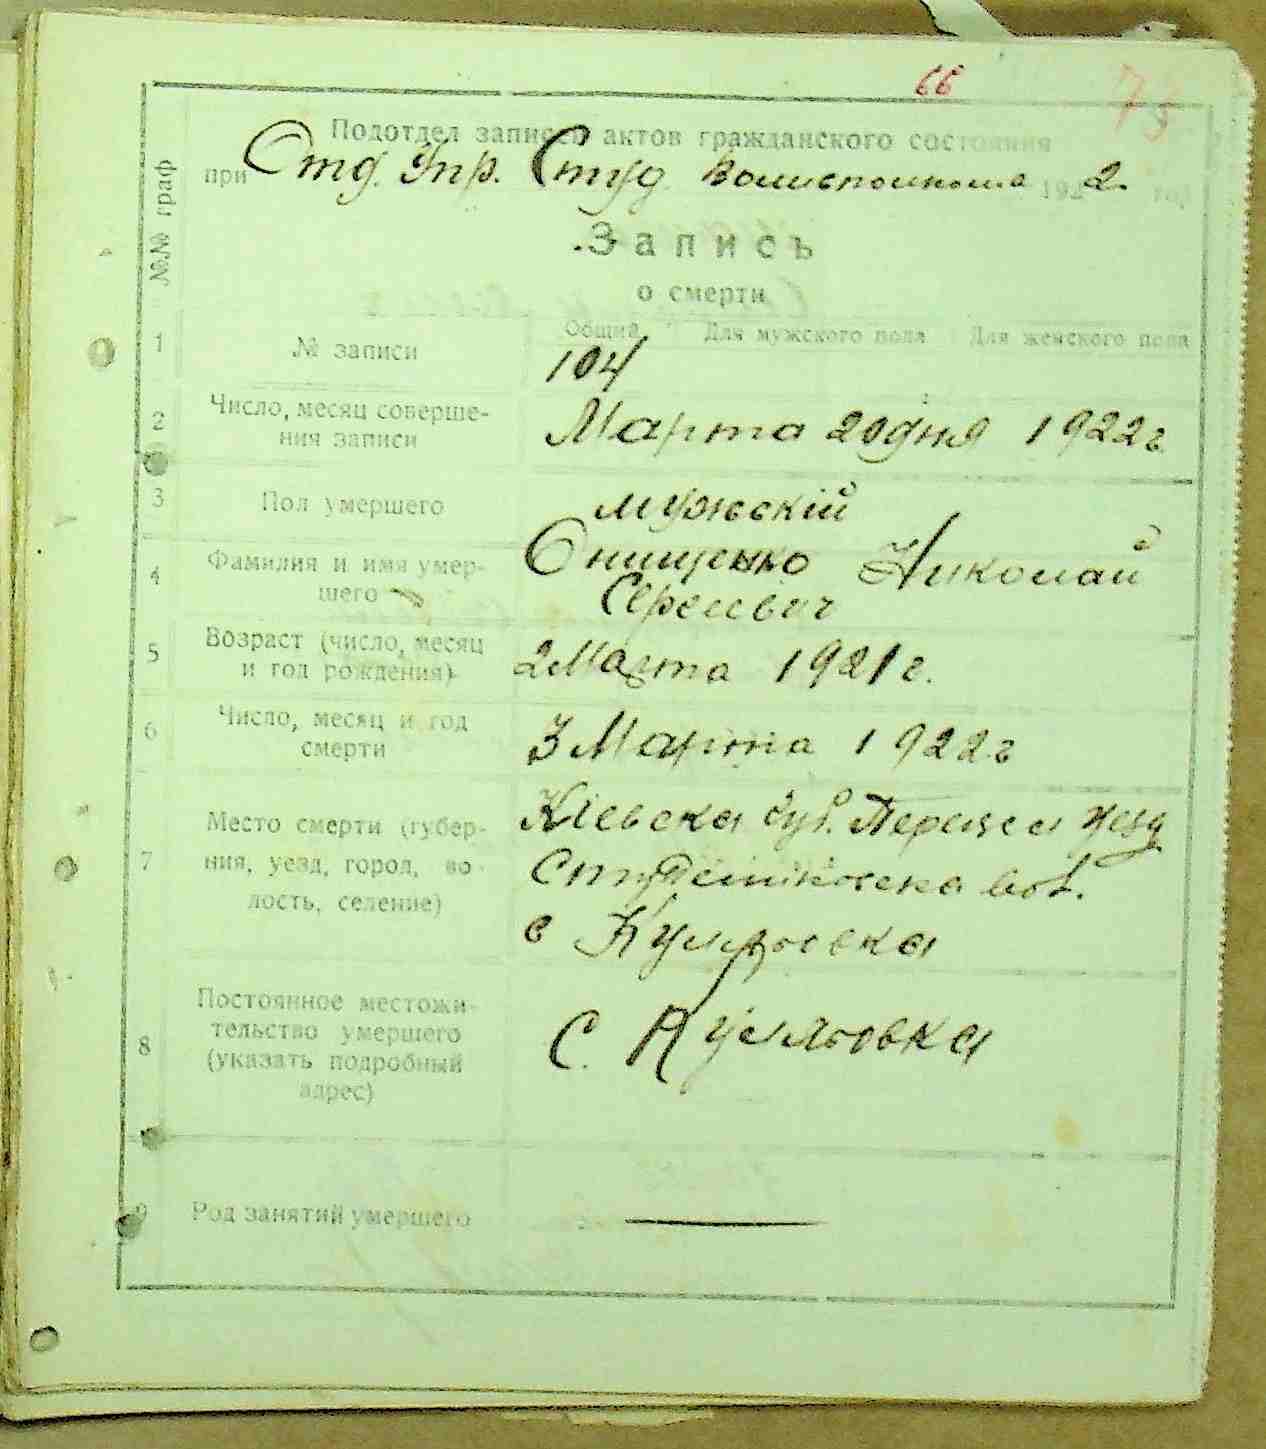 66
Подотдел записи актов гражданского состояния
при Отд. Упр. Студ Волисполкома 1922 год
Запись
о смерти
№№ граф
Общий Для мужского пола Для женского пола
1 № записи 104
2 Число, месяц соверше-
ния записи Марта 20 дня 1922 г
3 Пол умершего мужскій
4 Фамилия и имя умер-
шего Онищенко Николай
Сергеевич
5 Возраст (число, месяц
и год рождения) 2 Марта 1921 г.
6 Число, месяц и год
смерти 3 Марта 1922 г
7 Место смерти (губер-
ния, уезд, город, во-
лость, селение) Кіевска губ.
вол.
с
8 Постоянное местожи-
тельство умершего
(указать подробный
адрес) С.
9 Род занятий умершего —